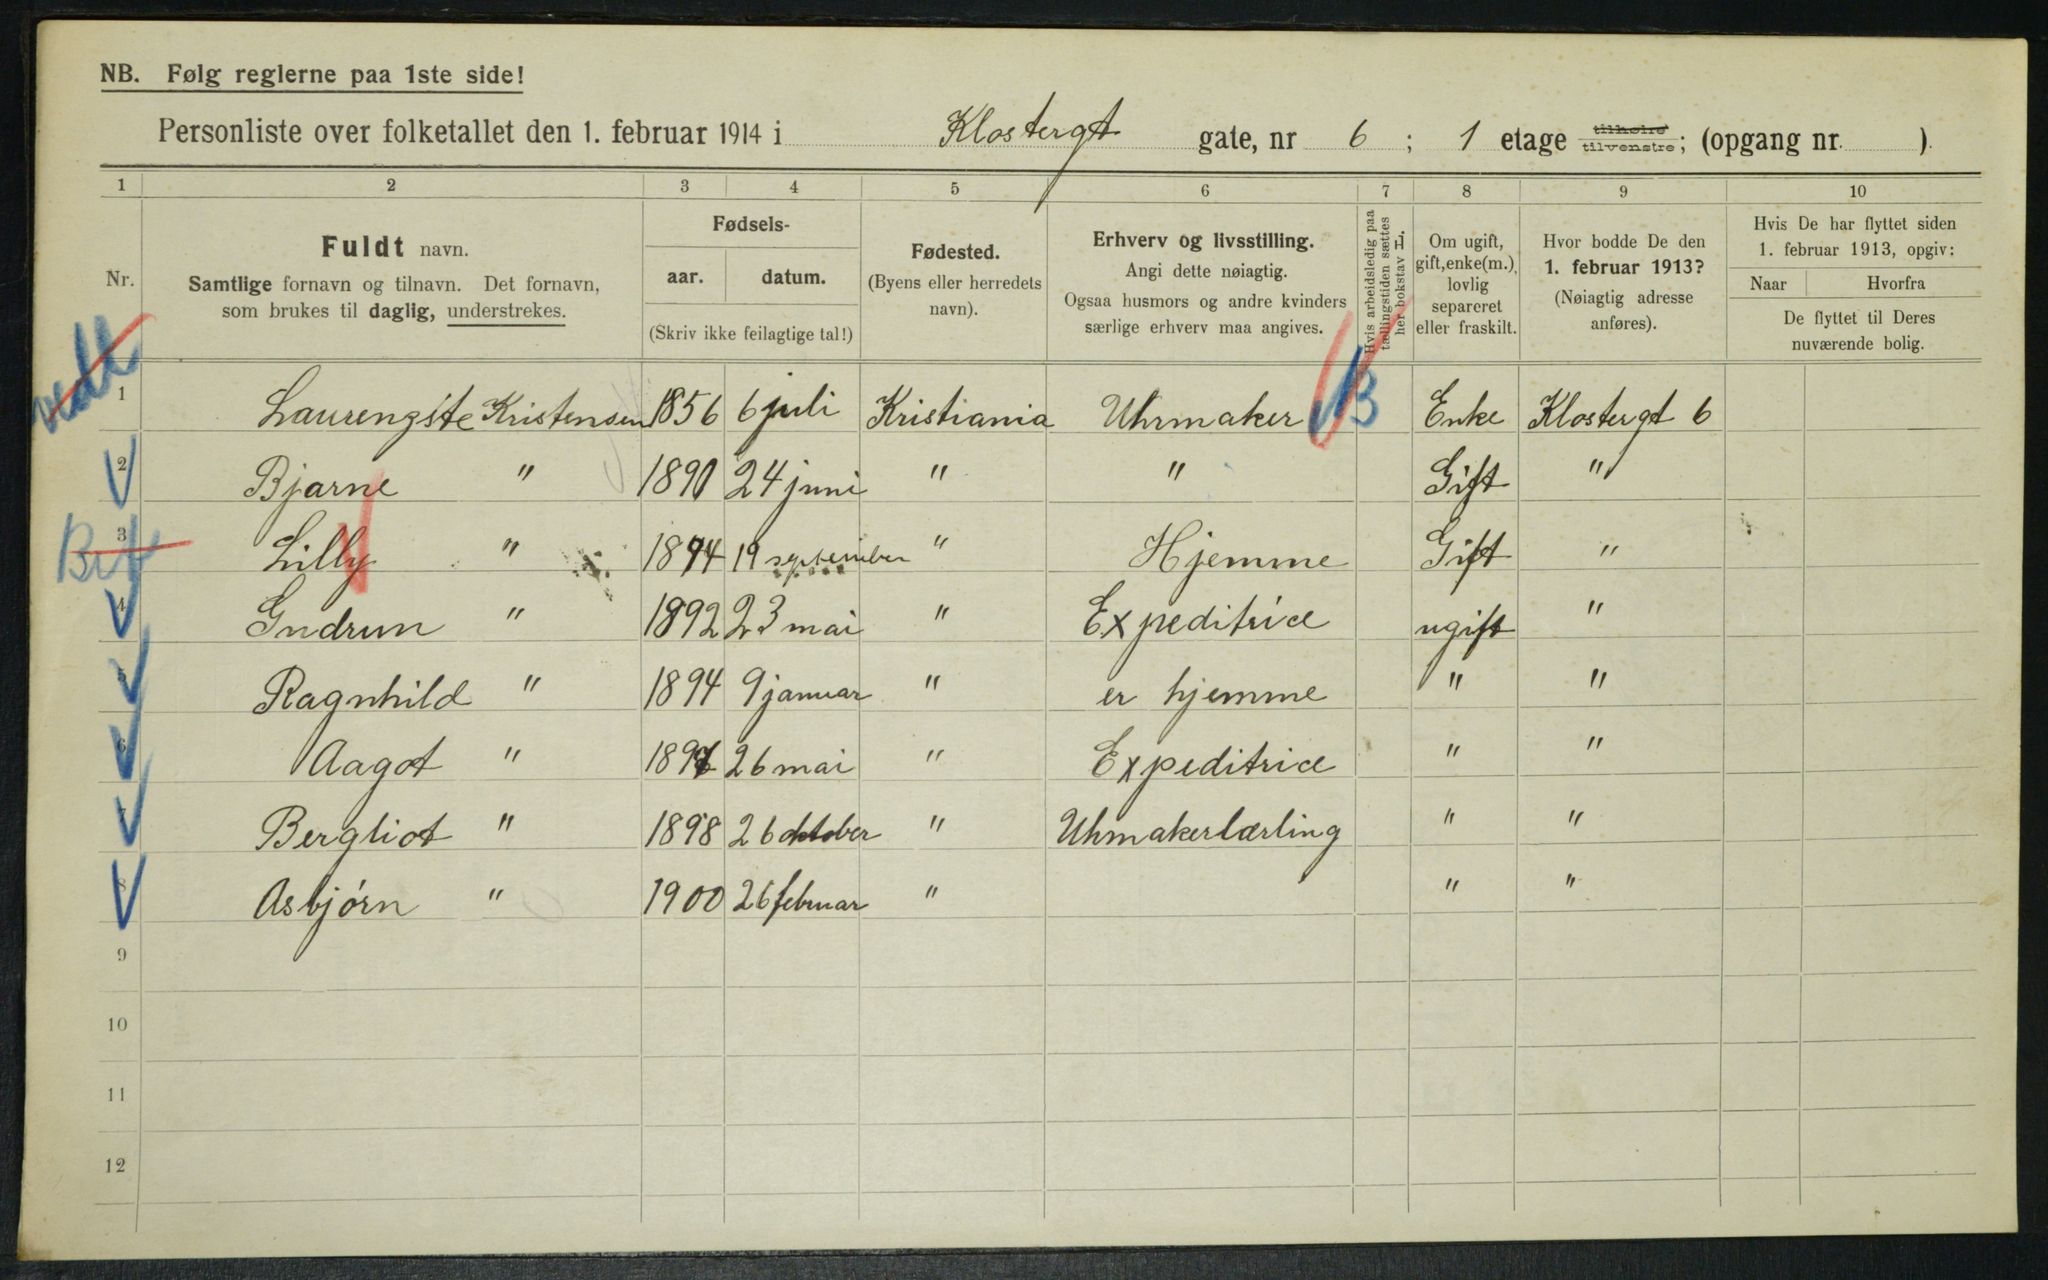 NB. Følg reglerne paa 1ste side!
Personliste over folketallet den 1. februar 1914 i Klostergt gate, nr 6 ; 1 etage tilhøire tilvenstre; (opgang nr. )
1 2 3 4 5 6 7 8 9 10
Nr.
Fuldt navn.
Samtlige fornavn og tilnavn. Det fornavn,
som brukes til daglig, understrekes.
Fødsels-
aar. datum.
(Skriv ikke feilagtige tal!)
Fødested.
(Byens eller herredets
navn).
Erhverv og livsstilling.
Angi dette nøiagtig.
Ogsaa husmors og andre kvinders
særlige erhverv maa angives.
Hvis arbeidsledig paa
tællingstiden sættes
her bokstav L.
Om ugift,
gift, enke(m.),
lovlig
separeret
eller fraskilt.
Hvor bodde De den
1. februar 1913?
(Nøiagtig adresse
anføres).
Hvis De har flyttet siden
1. februar 1913, opgiv:
Naar Hvorfra
De flyttet til Deres
nuværende bolig.
1 Laurengste Kristensen 1856 6 juli Kristiania Uhrmaker B Enke Klostergt 6
2 Bjarne " 1890 24 juni " " Gift "
3 Lilly " 1894 19 september " Hjemme Gift "
4 Gudrun " 1892 23 mai " Expeditrice ugift "
5 Ragnhild " 1894 9 januar " er hjemme " "
6 Aagot " 26 mai " Expeditrice " "
7 Bergliot " 1898 26 oktober " Uhmakerlærling " "
8 Asbjørn " 1900 26 februar " " "
9
10
11
12